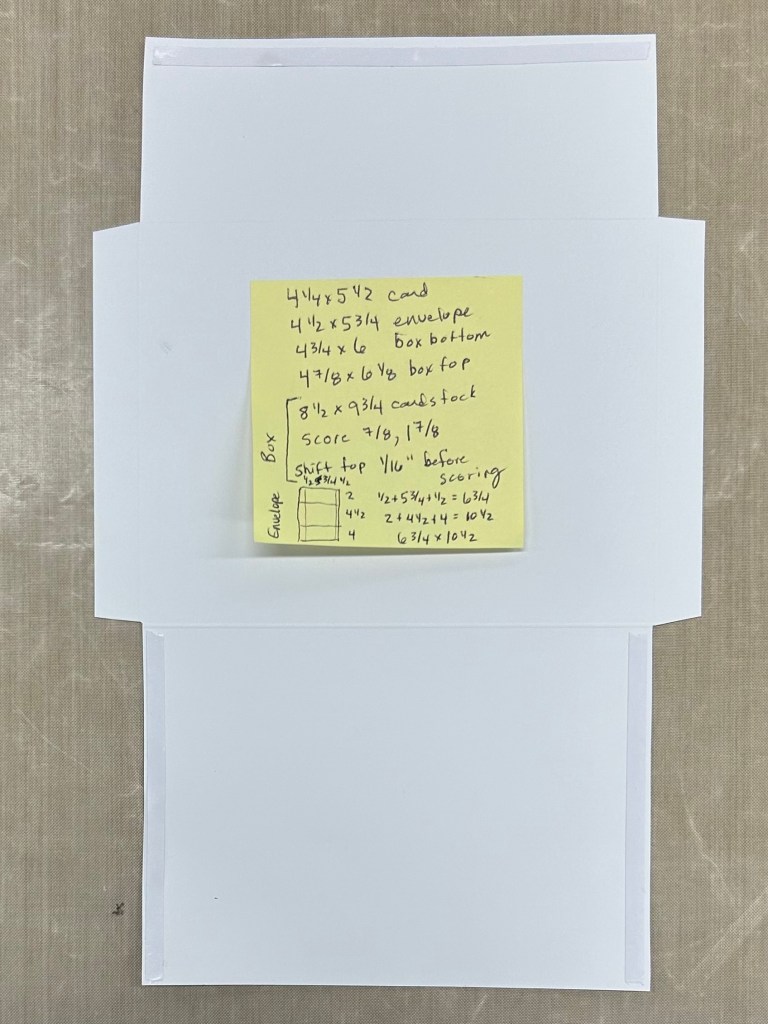 4 1/4 x 5 1/2 card
4 1/2 x 5 3/4 envelope
4 3/4 x 6 box bottom
4 7/8 x 6 1/8 box top
Box
8 1/2 x 9 3/4 cardstock
score 7/8, 1 7/8
shift top 1/16" before
scoring
Envelope
1/2 5 3/4 1/2
2 1/2 + 5 3/4 + 1/2 = 6 3/4
4 1/2 2 + 4 1/2 + 4 = 10 1/2
4 6 3/4 x 10 1/2